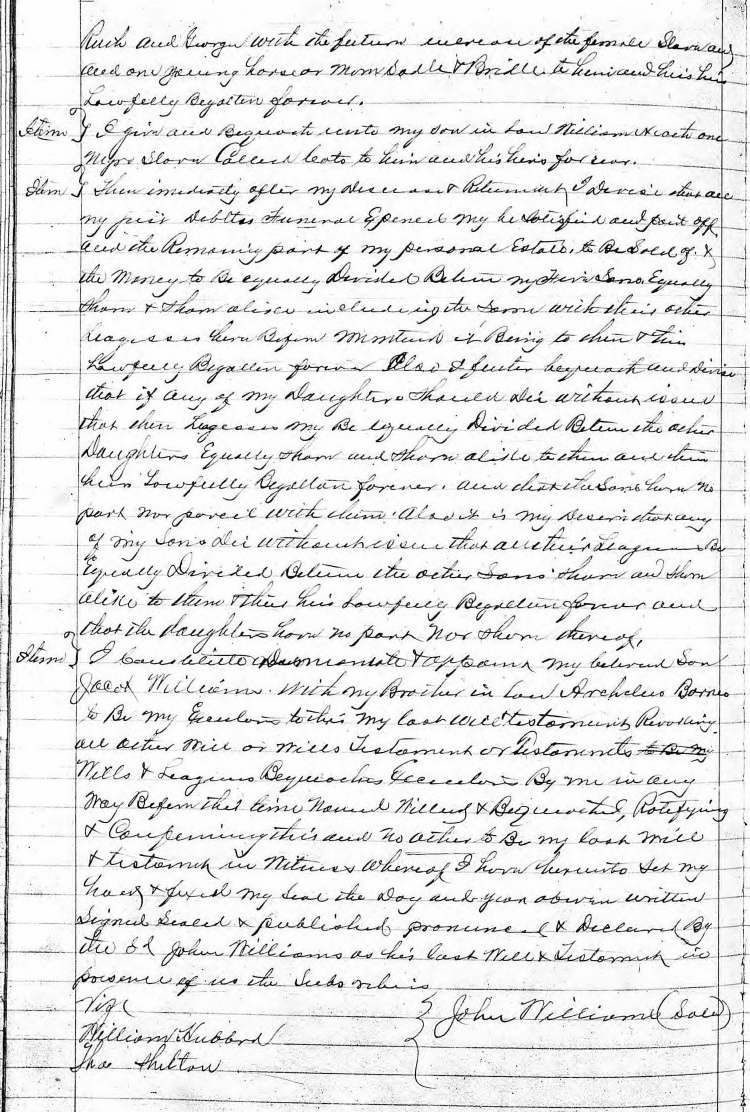 Ruth and George with the future increase of the female Slave and
and one young horse or Mare Sadle & Bridle to him and his heirs
Lawfully Begotten forever.
Item } I give and Bequeath unto my son in law William Heath one
Negro Slave Called Cato to him and his heirs forever.
Item } Then imediatly after my Decease & Retirement I Devise that all
my just Debtts Funeral Expences my be and paid off
and the Remaning part of my personal Estate, to Be Sold of &
the Money to Be equally Divided Between my Sons Equally
Share & Share alike including the Same with their other
Leagecies here Before Mentiond it Being to them & their
Lawfully Begotten forever Also I further bequeath and Devise
that if any of my Daughters Should Die without issue
that their Leagecies my Be Equally Divided Betwen the other
Daughters Equally Share and Share alike to them and their
heirs Lawfully Begotten forever. and that the Sons have no
part nor parcel with them. Also it is my Desire that any
of my Sons Die without issue that all their Leagecies Be
Equally Divided Between the other Sons Share and Share
alike to them & their heirs Lawfully Begotten forever and
that the daughters have no part Nor Share thereof,
Item } I Constitute & appoint my beloved Son
Jacob Williams. With my Brother in law Archelus Barnes
to Be my Executors to this my last Will & testament Revoking
all other Will or Wills Testament or Testaments to Be My
Wills & Leagecies Bequeathes Executors By me in any
Way Before this time Named Willed & Bequeathed, Ratifying
& Confirming this and no other to Be my last Will
& testament in Witness Whereof I have hereunto Set my
hand & fixed my Seal the Day and year above written
Signed Sealed & published, pronounced & Declared By
the Sd John Williams as his last Will & Testament in
presence of us the Subscribers
Viz {
William Hubbard } John Williams (Seal)
Thos Shelton